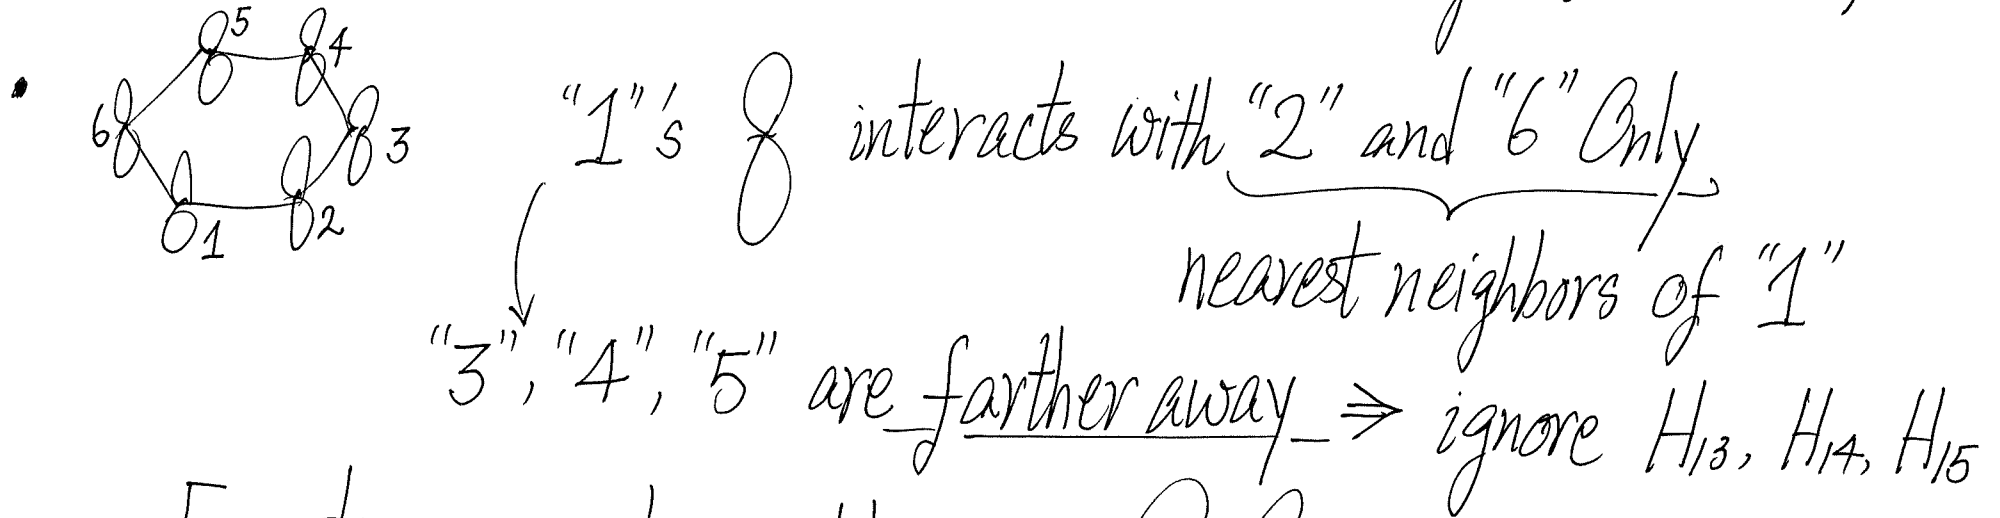 5 4
6 3
1 2
"1"'s interacts with "2" and "6" Only
nearest neighbors of "1"
"3", "4", "5" are farther away ⇒ ignore H₁₃, H₁₄, H₁₅